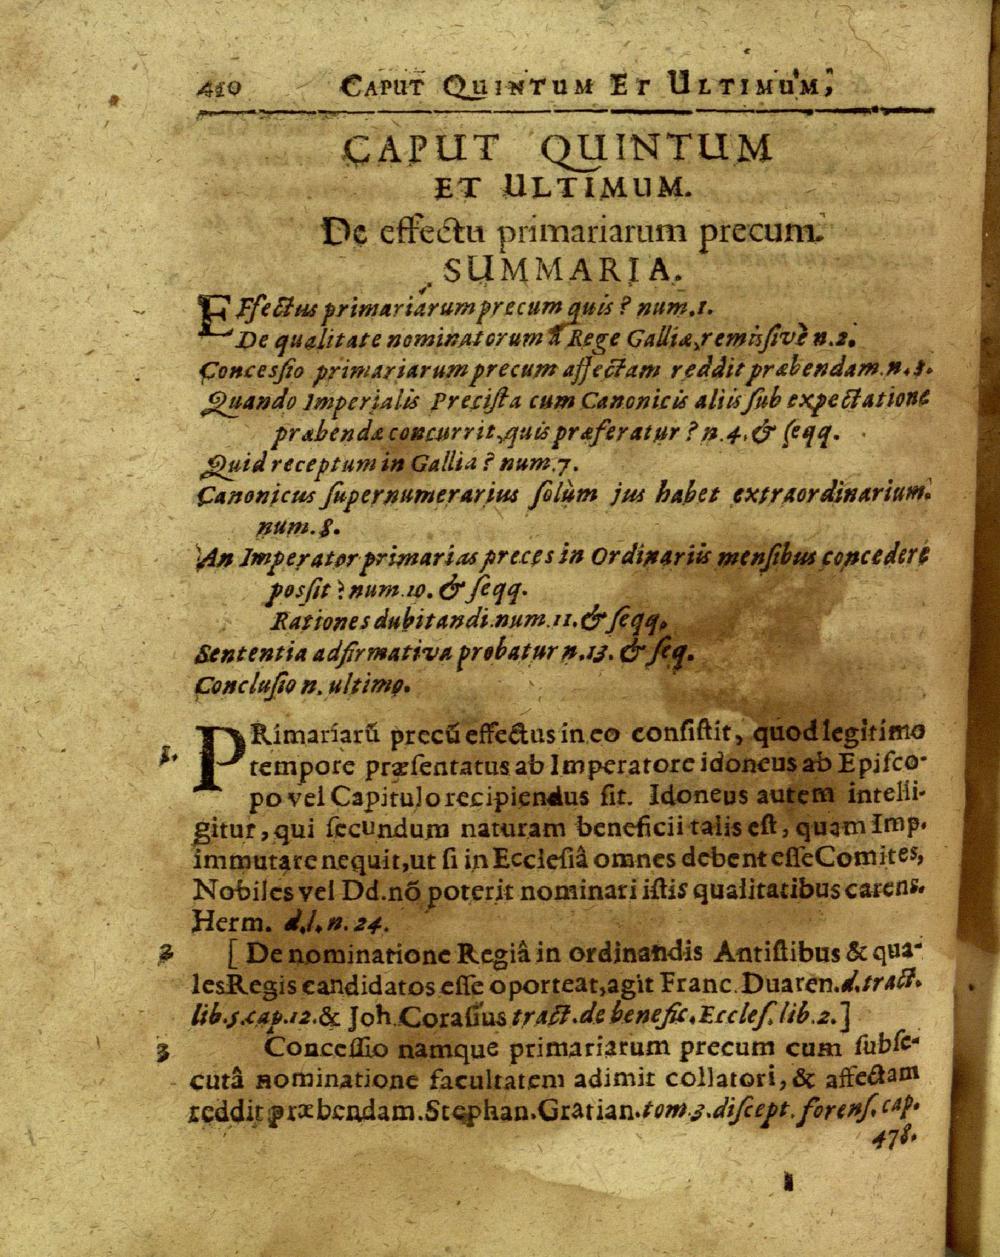 410 CAPUT QUINTUM ET ULTIMUM,
CAPUT QUINTUM
ET ULTIMUM.
De effectu primariarum precum.
SUMMARIA.
EFfectus primariarum precum quis? num. 1.
De qualitate nominatorum à Rege Galliæ, remissivè n. 2.
Concessio primariarum precum affectam reddit præbendam. n. 3.
Quando Imperialis Precista cum Canonicis aliis sub expectatione
præbendæ concurrit, quis præferatur? n. 4. & seqq.
Quid receptum in Gallia? num. 7.
Canonicus supernumerarius solùm jus habet extraordinarium.
num. 8.
An Imperator primarias preces in Ordinariis mensibus concedere
possit? num. 10. & seqq.
Rationes dubitandi. num. 11. & seqq.
Sententia adfirmativa probatur n. 13. & seq.
Conclusio n. ultimo.
1. PRimariarũ precũ effectus in eo consistit, quod legitimo
tempore præsentatus ab Imperatore idoneus ab Episco-
po vel Capitulo recipiendus sit. Idoneus autem intelli-
gitur, qui secundum naturam beneficii talis est, quam Imp.
immutare nequit, ut si in Ecclesiâ omnes debent esse Comites,
Nobiles vel Dd. nõ poterit nominari istis qualitatibus carens.
Herm. d. l. n. 24.
2 [ De nominatione Regiâ in ordinandis Antistibus & qua-
les Regis candidatos esse oporteat, agit Franc. Duaren. d. tract.
lib. 5. cap. 12. & Joh. Corasius tract. de benefic. Eccles. lib. 2. ]
3 Concessio namque primariarum precum cum subse-
cutâ nominatione facultatem adimit collatori, & affectam
reddit præbendam. Stephan. Gratian. tom. 3. discept. forens. cap.
478.